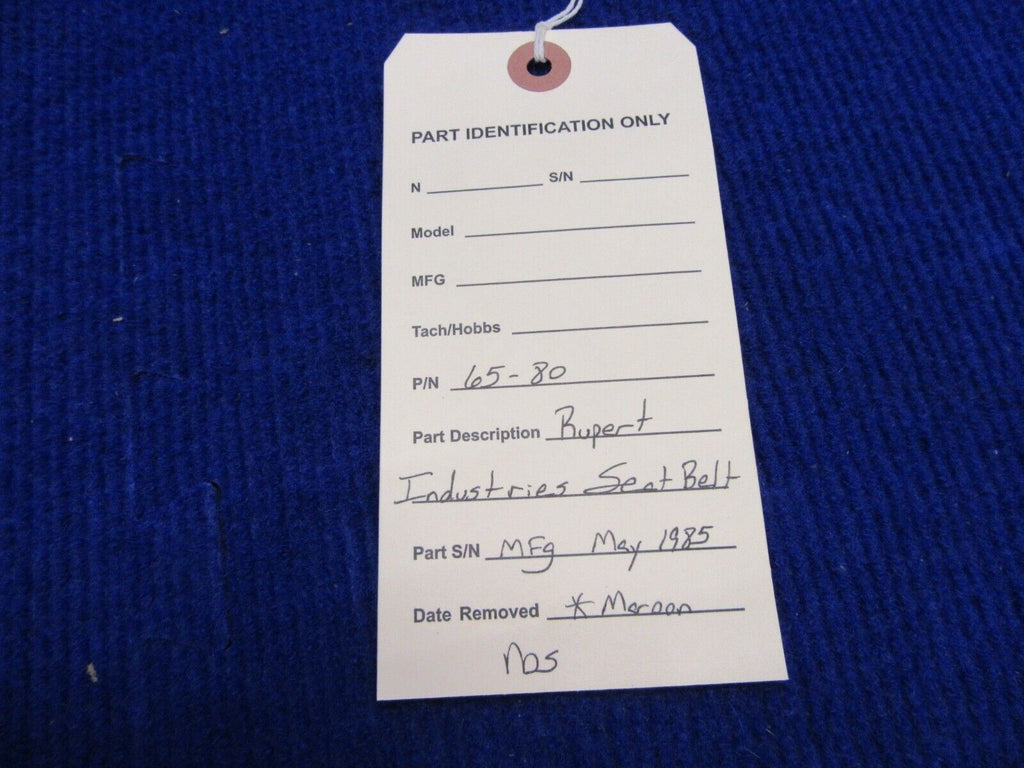 PART IDENTIFICATION ONLY
N S/N
Model
MFG
Tach/Hobbs
P/N 65-80
Part Description Rupert
Industries Seat Belt
Part S/N MFg May 1985
Date Removed * Maroon
Nos